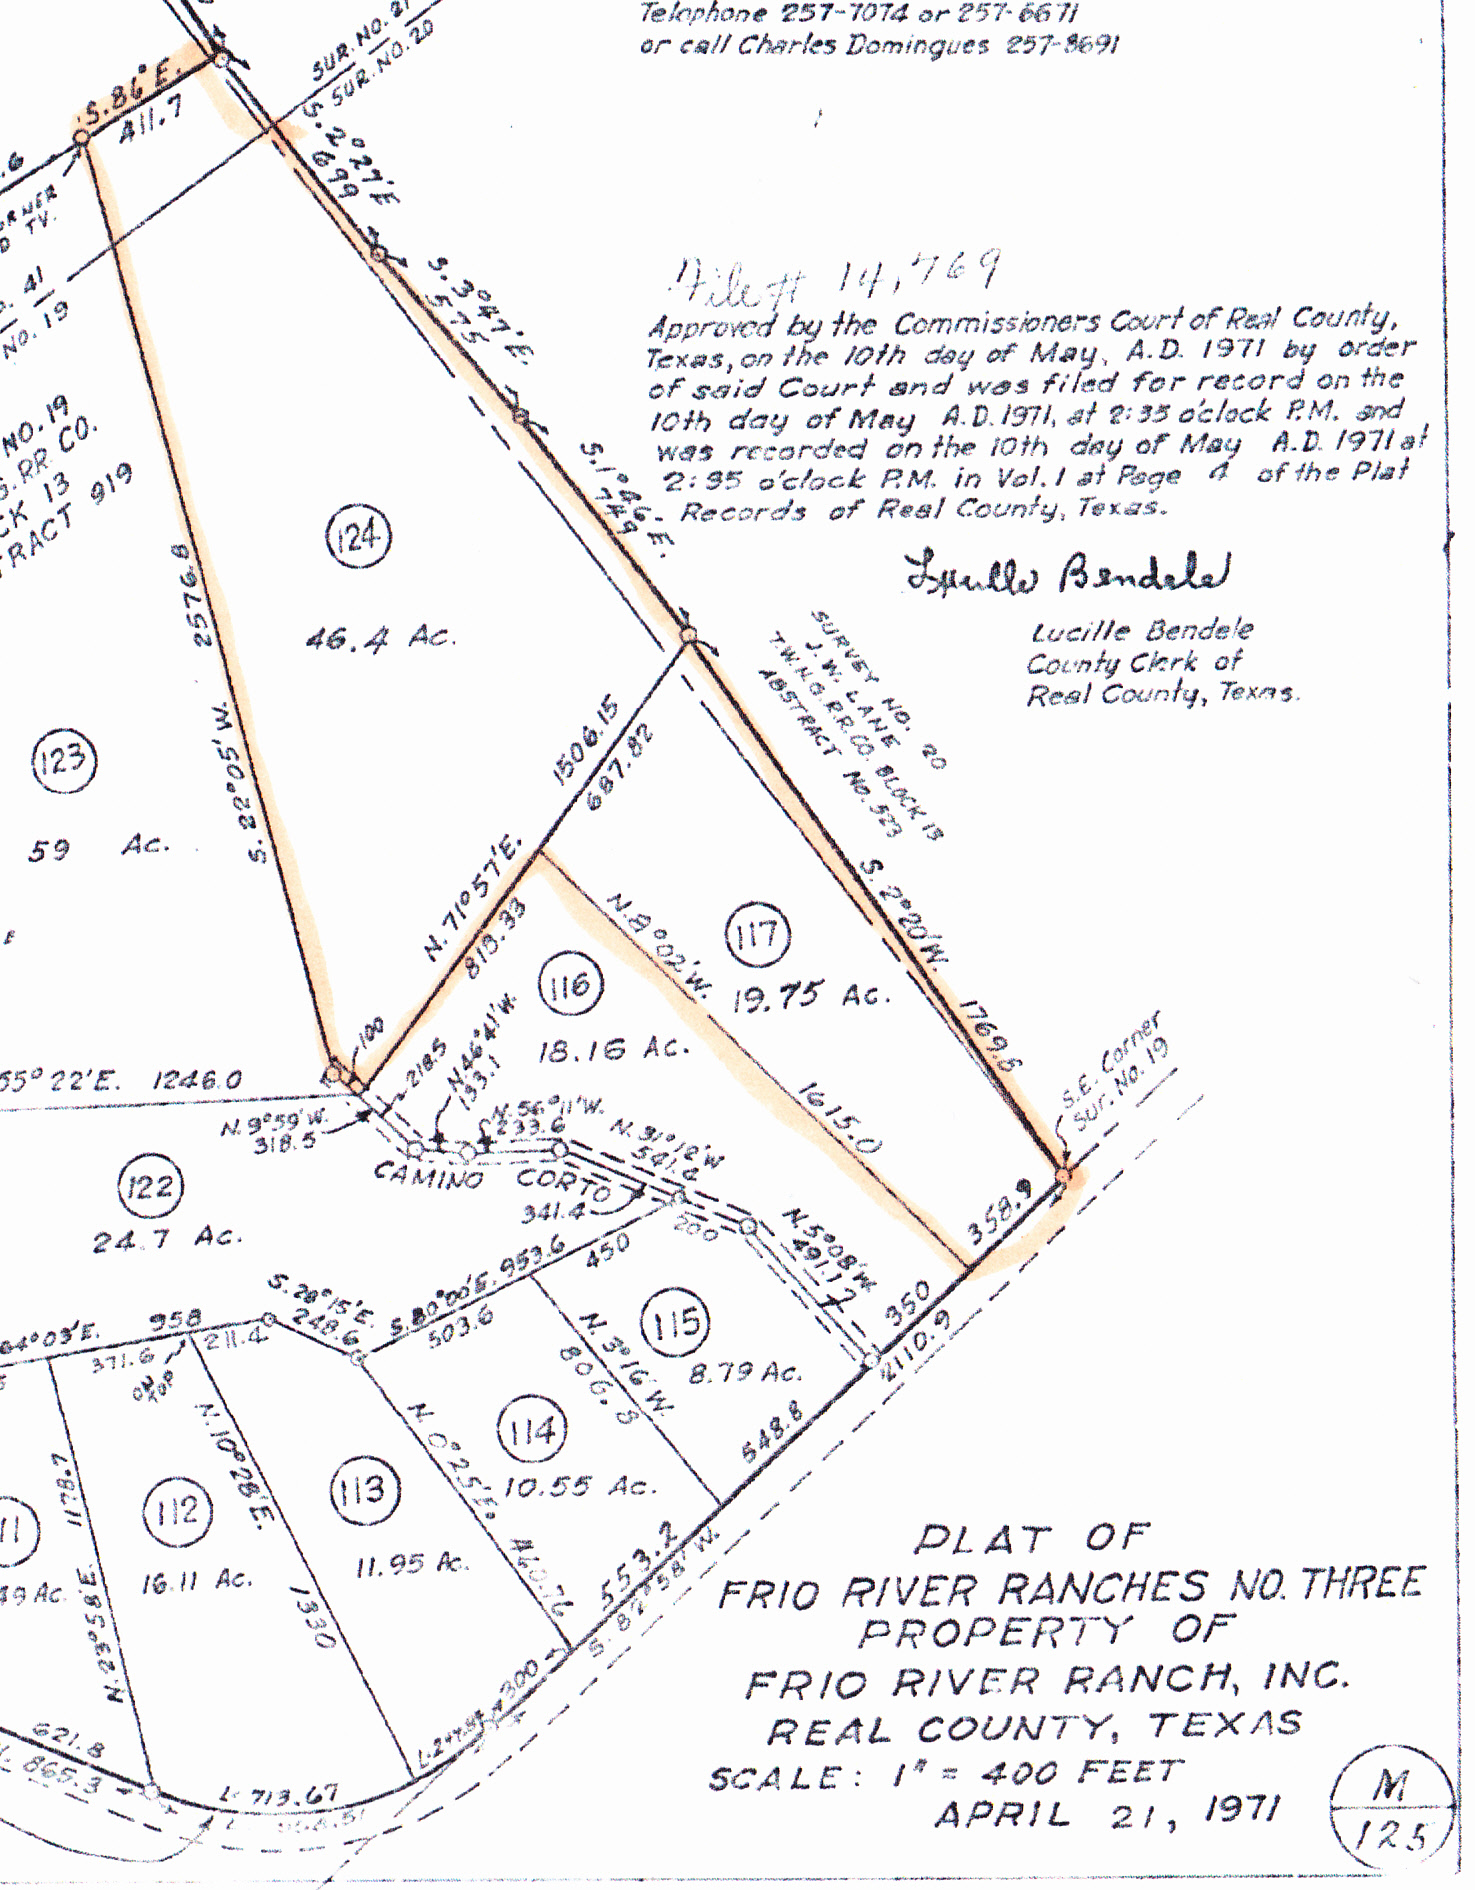 Telephone 257-7074 or 257-6671
or call Charles Domingues 257-8691
SUR. NO. 21
SUR. NO. 20
S. 86° E.
411.7
.6
ORNER
TV.
S. 2°27'E
699
41
NO. 19
S. 3°47'E.
575
File # 14,769
Approved by the Commissioners Court of Real County,
Texas, on the 10th day of May, A.D. 1971 by order
of said Court and was filed for record on the
10th day of May A.D. 1971, at 2:35 o'clock P.M. and
was recorded on the 10th day of May A.D. 1971 at
2:35 o'clock P.M. in Vol. 1 at Page 4 of the Plat
Records of Real County, Texas.
Lucille Bendele
Lucille Bendele
County Clerk of
Real County, Texas.
NO. 19
RR. CO.
CK 13
TRACT 919
S. 1°46' E.
749
124
46.4 Ac.
2576.8
S. 22°05' W.
SURVEY NO. 20
J. W. LANE
T.W.N.G. R.R. CO. BLOCK 13
ABSTRACT NO. 523
123
59 Ac.
1506.15
687.82
N. 71°57'E.
813.33
S. 2°20'W.
1769.6
N. 8°02'W.
1615.0
117
19.75 Ac.
116
18.16 Ac.
100
218.5
N. 46°41'W.
133.1
55°22'E. 1246.0
N. 9°59'W.
318.5
N. 56°11'W.
233.6
N. 31°12'W
541.4
S.E. Corner
Sur. No. 19
CAMINO CORTO
341.4
200
N. 5°08'W.
491.17
358.9
350
2110.9
122
24.7 Ac.
S. 28°15'E.
248.6
S. 80°00'E. 953.6
450
503.6
64°03'E.
958
371.6
211.4
N. 3°16'W.
806.8
115
8.79 Ac.
548.8
114
10.55 Ac.
N. 0°25'E.
460.76
113
11.95 Ac.
N. 10°28'E.
1330
112
16.11 Ac.
1178.7
N. 23°58'E.
11
49 Ac.
553.2
S. 82°58' W.
300
621.8
865.3
L- 713.67
PLAT OF
FRIO RIVER RANCHES NO. THREE
PROPERTY OF
FRIO RIVER RANCH, INC.
REAL COUNTY, TEXAS
SCALE: 1" = 400 FEET
APRIL 21, 1971
M
125